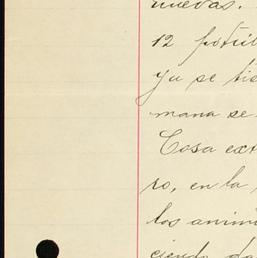 nuevas.
12 fotó
ya se tie
mana se
Cosa ext
ro, en la
los anim
ciendo da